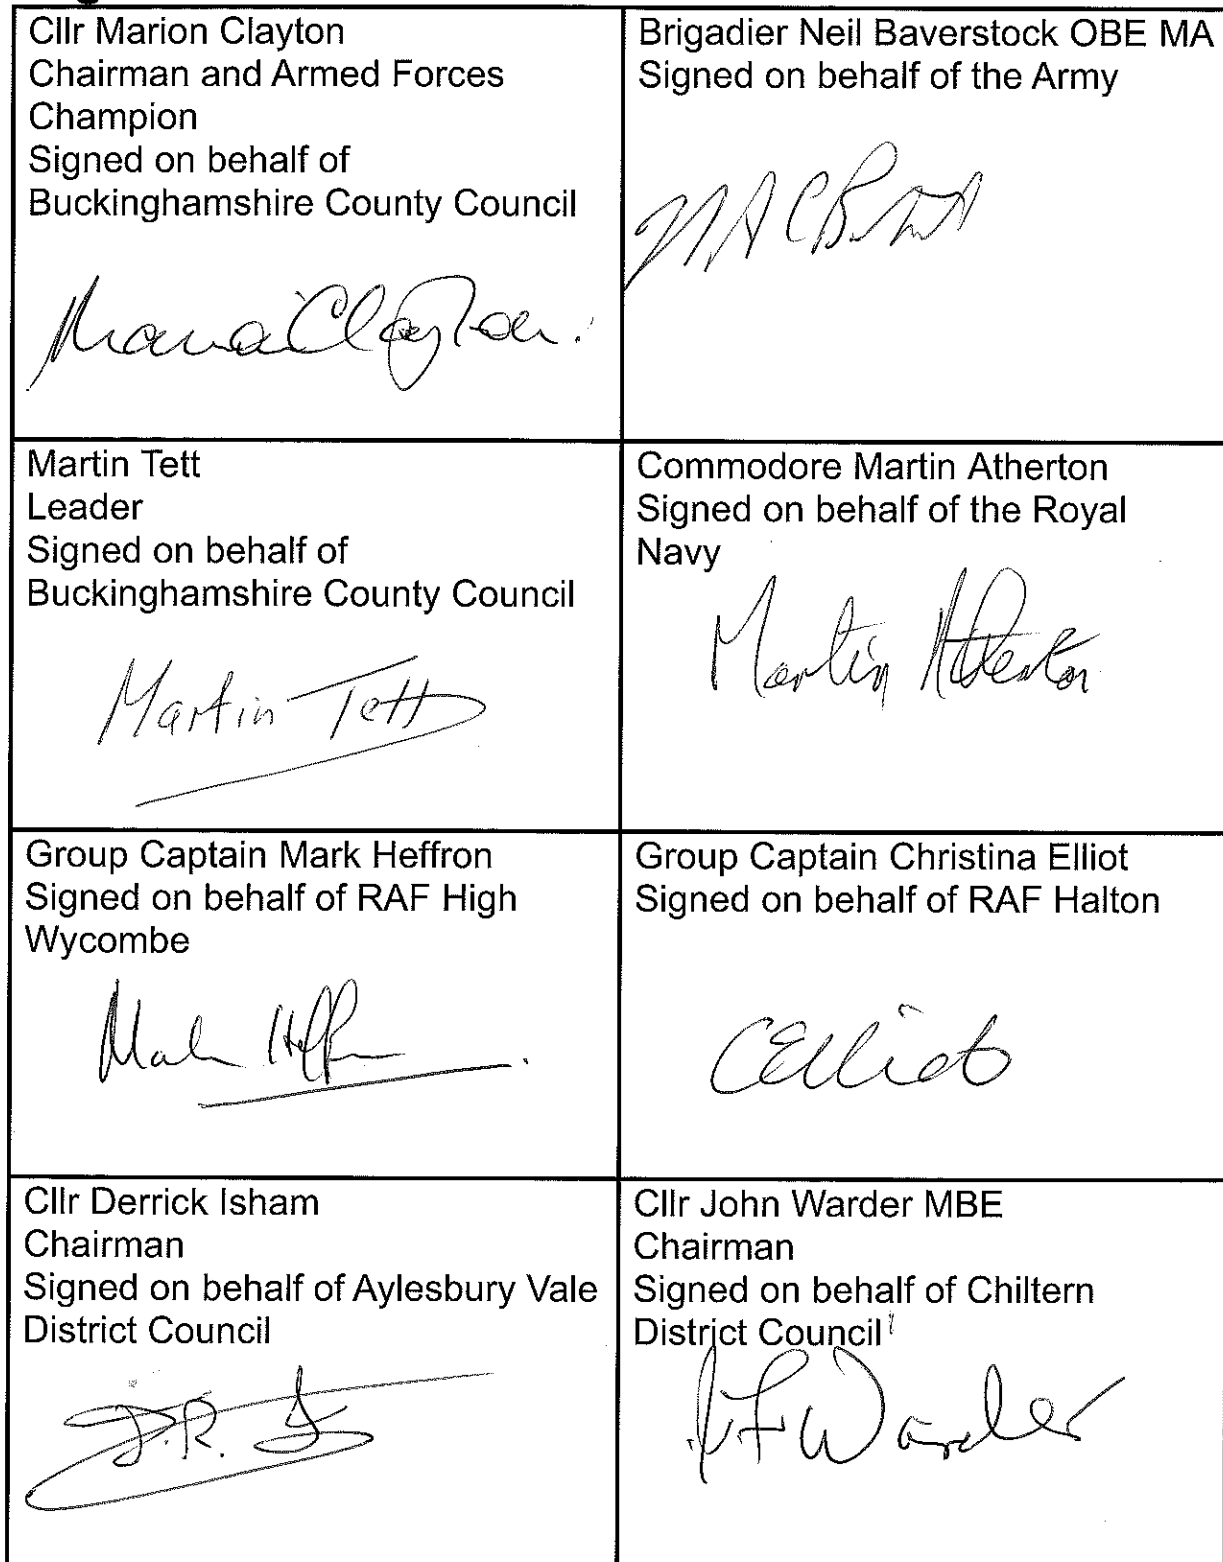 Cllr Marion Clayton
Chairman and Armed Forces
Champion
Signed on behalf of
Buckinghamshire County Council
Marion Clayton.
Brigadier Neil Baverstock OBE MA
Signed on behalf of the Army
Martin Tett
Leader
Signed on behalf of
Buckinghamshire County Council
Martin Tett
Commodore Martin Atherton
Signed on behalf of the Royal
Navy
Martin Atherton
Group Captain Mark Heffron
Signed on behalf of RAF High
Wycombe
Group Captain Christina Elliot
Signed on behalf of RAF Halton
CElliot
Cllr Derrick Isham
Chairman
Signed on behalf of Aylesbury Vale
District Council
D.R.
Cllr John Warder MBE
Chairman
Signed on behalf of Chiltern
District Council
Warder